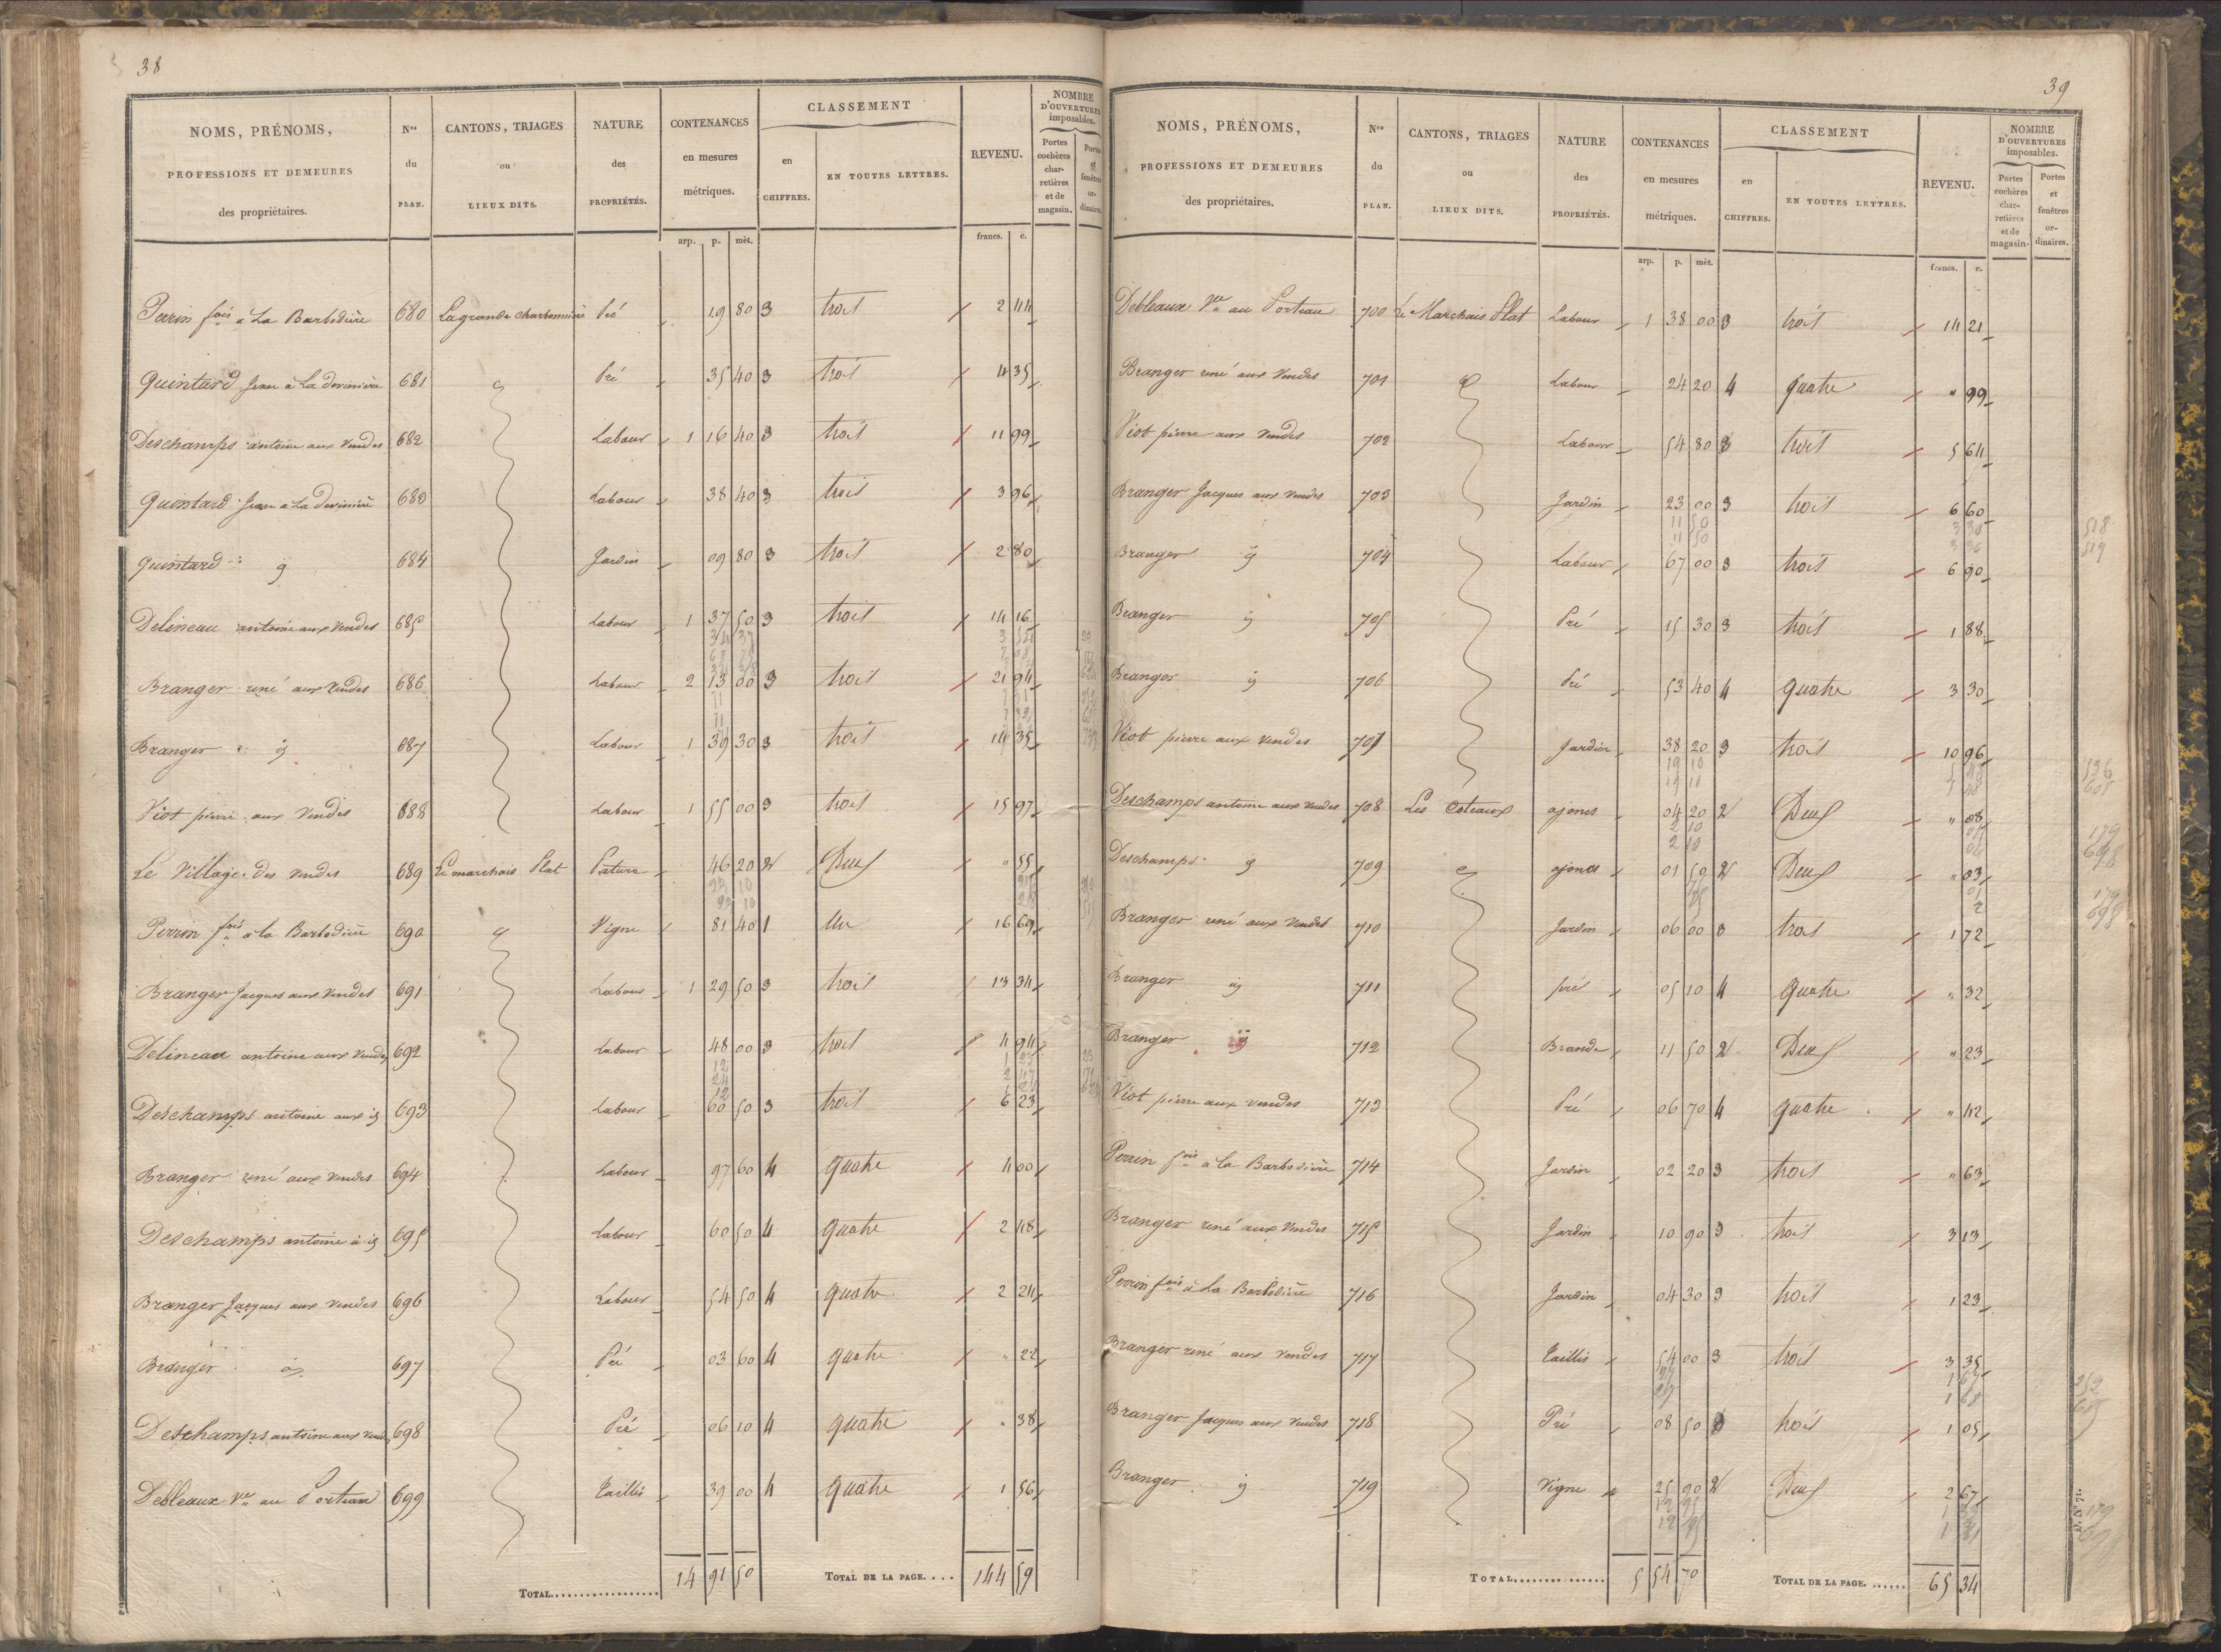 38
NOMS, PRÉNOMS, PROFESSIONS ET DEMEURES des propriétaires. Nos du PLAN. CANTONS, TRIAGES ou LIEUX DITS. NATURE des PROPRIÉTÉS. CONTENANCES en mesures métriques. CLASSEMENT en CHIFFRES. EN TOUTES LETTRES. REVENU. NOMBRE D'OUVERTURES imposables. Portes cochères charretières et de magasin. Portes et fenêtres ordinaires.
arp. p. mèt. francs. c.
Perrin fois à La Barbodière 680 La grande charbonnière Pré 19 80 3 trois 2 44
Quintard Jean à La devinière 681 Pré 35 40 3 trois 4 35
Deschamps antoine aux Vendes 682 Labour 1 16 40 3 trois 11 99
Quintard Jean à La devinière 683 Labour 38 40 3 trois 3 96
Quintard ij 684 Jardin 09 80 3 trois 2 80
Delineau antoine aux Vendes 685 Labour 1 37 50 3 trois 14 16
Branger réné aux Vendes 686 Labour 2 13 00 3 trois 21 94
Branger ij 687 Labour 1 39 30 3 trois 14 35
Viot pierre aux Vendes 688 Labour 1 55 00 3 trois 15 97
Le Village des Vendes 689 Le marchais Plat Pature 46 20 2 Deux " 55
Perrin fois à la Barbodière 690 Vigne 81 40 1 Un 16 69
Branger Jacques aux Vendes 691 Labour 1 29 50 3 trois 13 34
Delineau antoine aux Vendes 692 Labour 48 00 3 trois 4 94
Deschamps antoine aux ij 693 Labour 60 50 3 trois 6 23
Branger réné aux Vendes 694 Labour 97 60 4 quatre 4 00
Deschamps antoine à ij 695 Labour 60 50 4 quatre 2 48
Branger Jacques aux Vendes 696 Labour 54 50 4 quatre 2 24
Branger ij 697 Pré 03 60 4 quatre " 22
Deschamps antoine aux Vendes 698 Pré 06 10 4 quatre " 38
Debleaux Ve au Porteau 699 Taillis 39 00 4 quatre 1 56
TOTAL 14 91 50 TOTAL DE LA PAGE.... 144 59
39
NOMS, PRÉNOMS, PROFESSIONS ET DEMEURES des propriétaires. Nos du PLAN. CANTONS, TRIAGES ou LIEUX DITS. NATURE des PROPRIÉTÉS. CONTENANCES en mesures métriques. CLASSEMENT en CHIFFRES. EN TOUTES LETTRES. REVENU. NOMBRE D'OUVERTURES imposables. Portes cochères charretières et de magasin. Portes et fenêtres ordinaires.
arp. p. mèt. francs. c.
Debleaux Ve au Porteau 700 Le Marchais Plat Labour 1 38 00 3 trois 14 21
Branger réné aux Vendes 701 Labour 24 20 4 quatre " 99
Viot pierre aux Vendes 702 Labour 54 80 3 trois 5 64
Branger Jacques aux Vendes 703 Jardin 23 00 3 trois 6 60
11 50 518
11 50 519
Branger ij 704 Labour 67 00 3 trois 6 90
Branger ij 705 Pré 15 30 3 trois 1 88
Branger ij 706 Pré 53 40 4 quatre 3 30
Viot pierre aux Vendes 707 Jardin 38 20 3 trois 10 96
19 10
19 10
Deschamps antoine aux Vendes 708 Les Coteaux ajoncs 04 20 2 Deux " 08
2 10
2 10
Deschamps ij 709 ajoncs 01 50 2 Deux " 03
Branger réné aux Vendes 710 Jardin 06 00 3 trois 1 72
Branger ij 711 pré 05 10 4 quatre " 32
Branger ij 712 Brande 11 50 2 Deux " 23
Viot pierre aux Vendes 713 Pré 06 70 4 quatre " 42
Perrin fois à la Barbodière 714 Jardin 02 20 3 trois " 63
Branger réné aux Vendes 715 Jardin 10 90 3 trois 3 13
Perrin fois à La Barbodière 716 Jardin 04 30 3 trois 1 23
Branger réné aux Vendes 717 Taillis 54 00 3 trois 3 35
Branger Jacques aux Vendes 718 Pré 08 50 3 trois 1 05
Branger ij 719 Vigne 25 90 2 Deux 2 67
TOTAL 5 54 70 TOTAL DE LA PAGE. 65 34